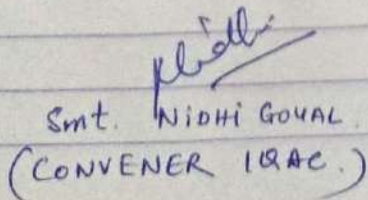 Nidhi
Smt. NiDHi GOYAL.
(CONVENER IQAC.)